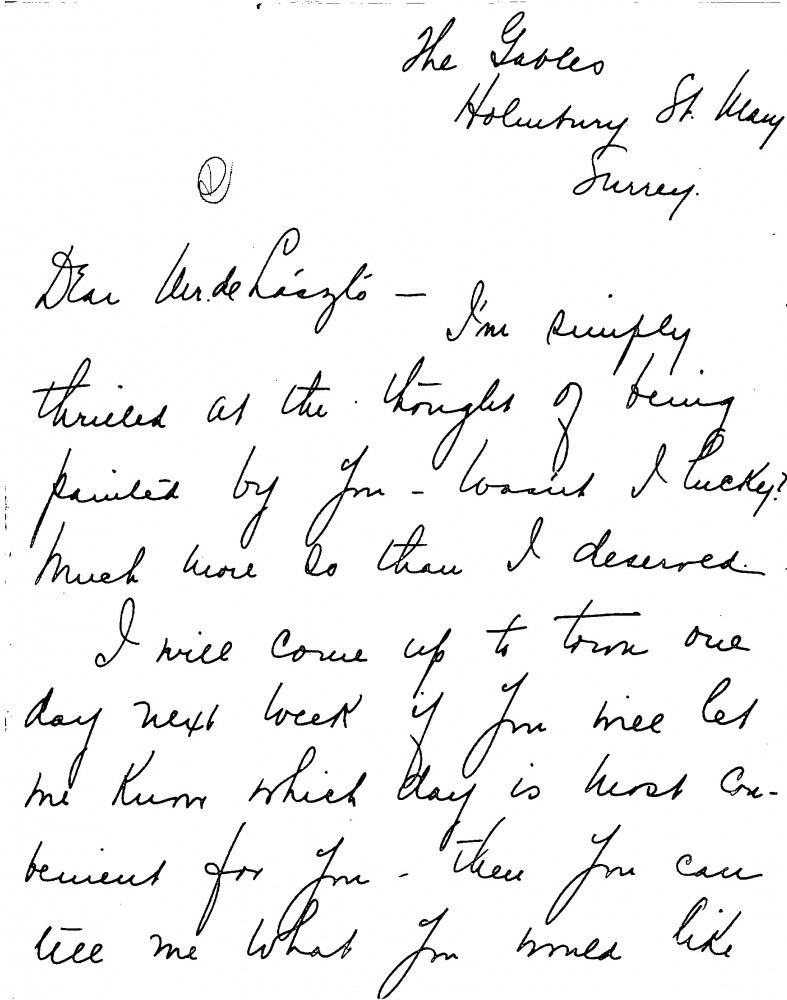 The Gables
Holmbury St. Mary
Surrey.
Dear Mr. de László —
I'm simply
thrilled at the thought of being
painted by you - wasn't I lucky?
Much more so than I deserved.
I will come up to town one
day next week if you will let
me know which day is most con-
venient for you - then you can
tell me what you would like